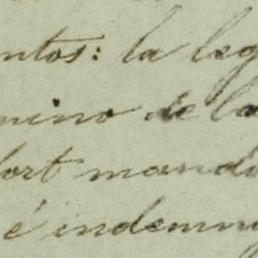 ntos: la leg
mino de la
fort mand
é indemn